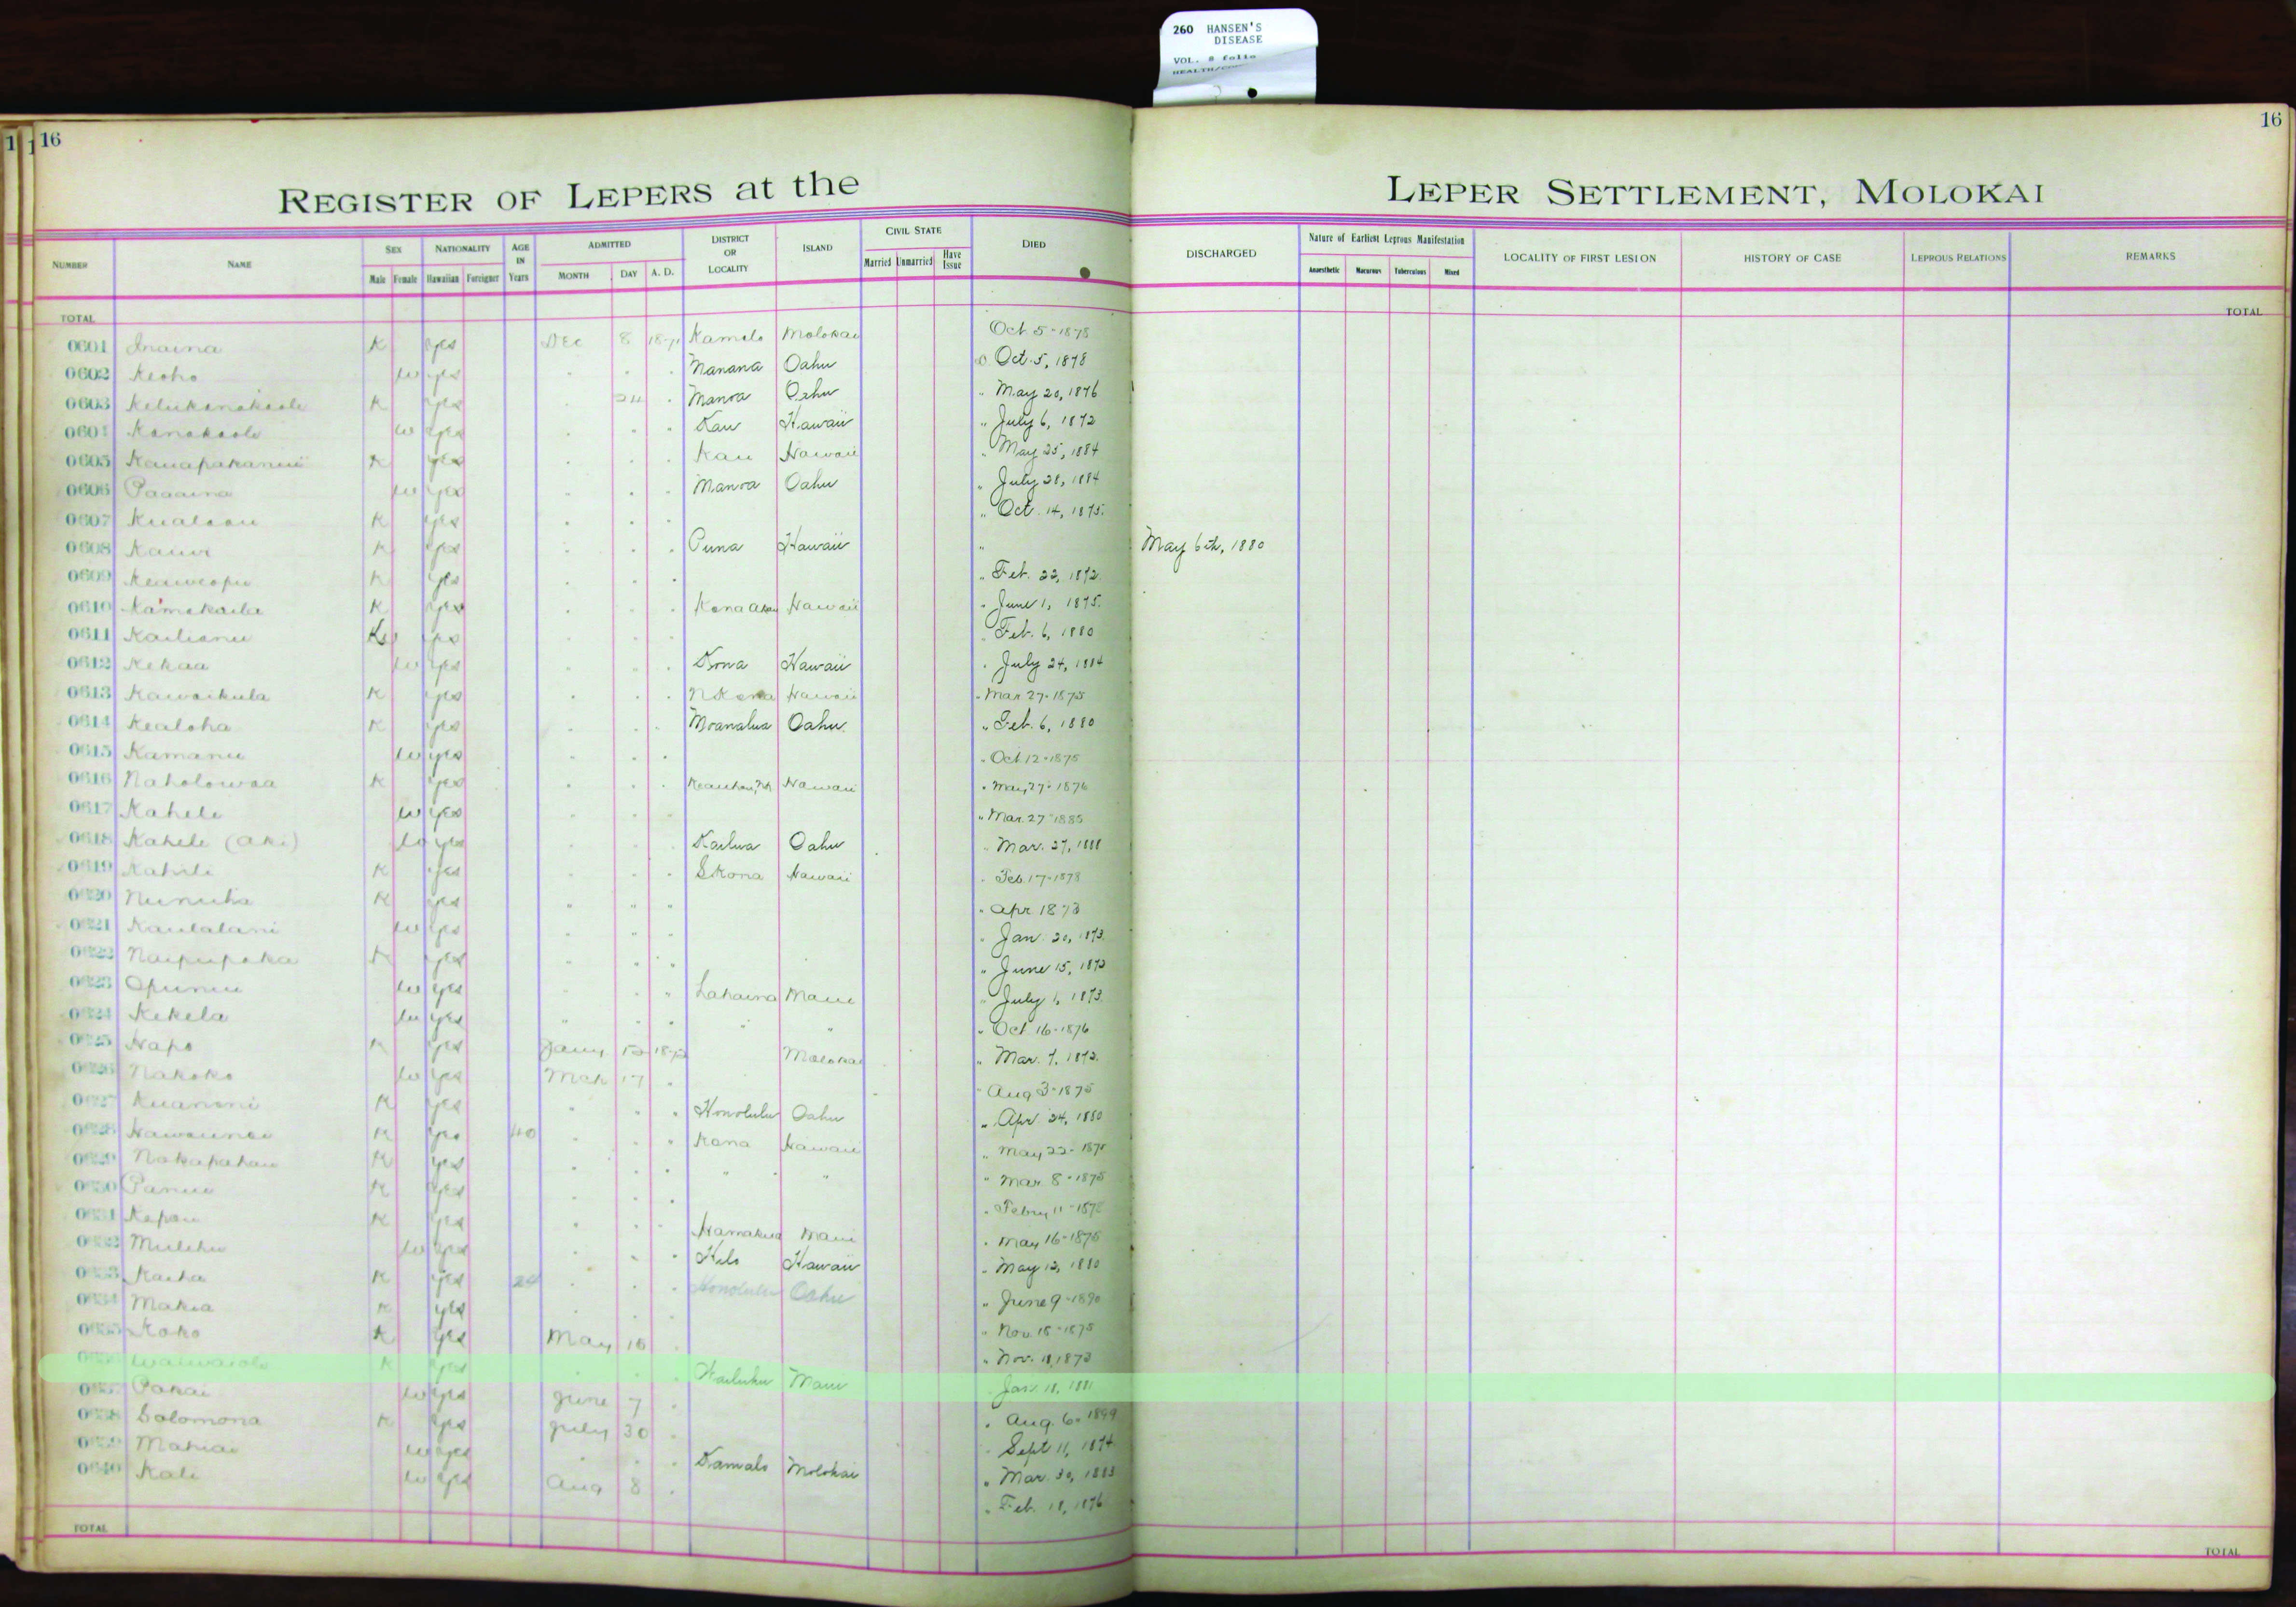 260 HANSEN'S
DISEASE
VOL. 8 folio
16
16
REGISTER OF LEPERS at the LEPER SETTLEMENT, MOLOKAI
NUMBER NAME SEX NATIONALITY AGE IN Years ADMITTED DISTRICT OR LOCALITY ISLAND CIVIL STATE DIED DISCHARGED Nature of Earliest Leprous Manifestation LOCALITY OF FIRST LESION HISTORY OF CASE LEPROUS RELATIONS REMARKS
Male Female Hawaiian Foreigner MONTH DAY A. D. Married Unmarried Have Issue Anaesthetic Macurous Tuberculous Mixed
TOTAL TOTAL
0601 Inaina K yes Dec 8 1871 Kamalo Molokai Oct 5-1878
0602 Keoho w yes Manana Oahu Oct. 5, 1878
0603 K yes 24 Manoa Oahu " May 20, 1876
0604 Kanakaole w yes Kau Hawaii " July 6, 1872
0605 K yes Kau Hawaii " May 25, 1884
0606 Paaaina w yes Manoa Oahu " July 28, 1884
0607 K yes " Oct. 14, 1875
0608 Kauwi K yes Puna Hawaii " May 6th, 1880
0609 Keaweopu K yes " Feb. 22, 1872
0610 Kamakaila K yes Kona Akau Hawaii " June 1, 1875
0611 Kailianu yes Feb. 6, 1880
0612 Kekaa w yes Kona Hawaii " July 24, 1884
0613 Kawaikula K yes N Kona Hawaii " Mar 27-1875
0614 Kealoha K yes Moanalua Oahu " Feb. 6, 1880
0615 Kamanu w yes " Oct 12-1875
0616 Naholowaa K yes Hawaii " May 27-1876
0617 Kahele w yes " Mar. 27-1885
0618 Kahele (Aki) w yes Kailua Oahu " Mar. 27, 1888
0619 K yes S Kona Hawaii " Feb. 17-1878
0620 K yes " " " " Apr 1873
0621 Kaulalani w yes " Jan. 20, 1873
0622 Naipupaka K yes " June 15, 1873
0623 Opunui w yes Lahaina Maui " July 1, 1873
0624 Kekela w yes " " " Oct 16-1876
0625 Hapo K yes Jany 12 1872 Molokai " Mar. 7, 1872
0626 Nakoko w yes Mch 17 " Aug 3-1875
0627 K yes Honolulu Oahu " Apr. 24, 1880
0628 K yes 40 Kona Hawaii " May 22-187
0629 Nakapahau K yes " " " Mar. 8-1875
0630 Panui K yes " Febry 11-187
0631 Kapau K yes Hamakua Maui " May 16-1875
0632 Mulehu w yes Hilo Hawaii " May 12, 1880
0633 Kaiha K yes 24 Honolulu Oahu " June 9-1890
0634 Makia K yes " Nov. 18-1875
0635 Koko K yes May 15 " Nov. 11, 1873
K yes Wailuku Maui Jan. 18, 1881
Pakai w yes June 7 " Aug. 6. 1899
Solomona K yes July 30 Sept 11, 1874
Mahiai w yes Kamalo Molokai " Mar. 30, 1883
0640 Kale w yes Aug 8 " Feb. 18, 1876
TOTAL TOTAL